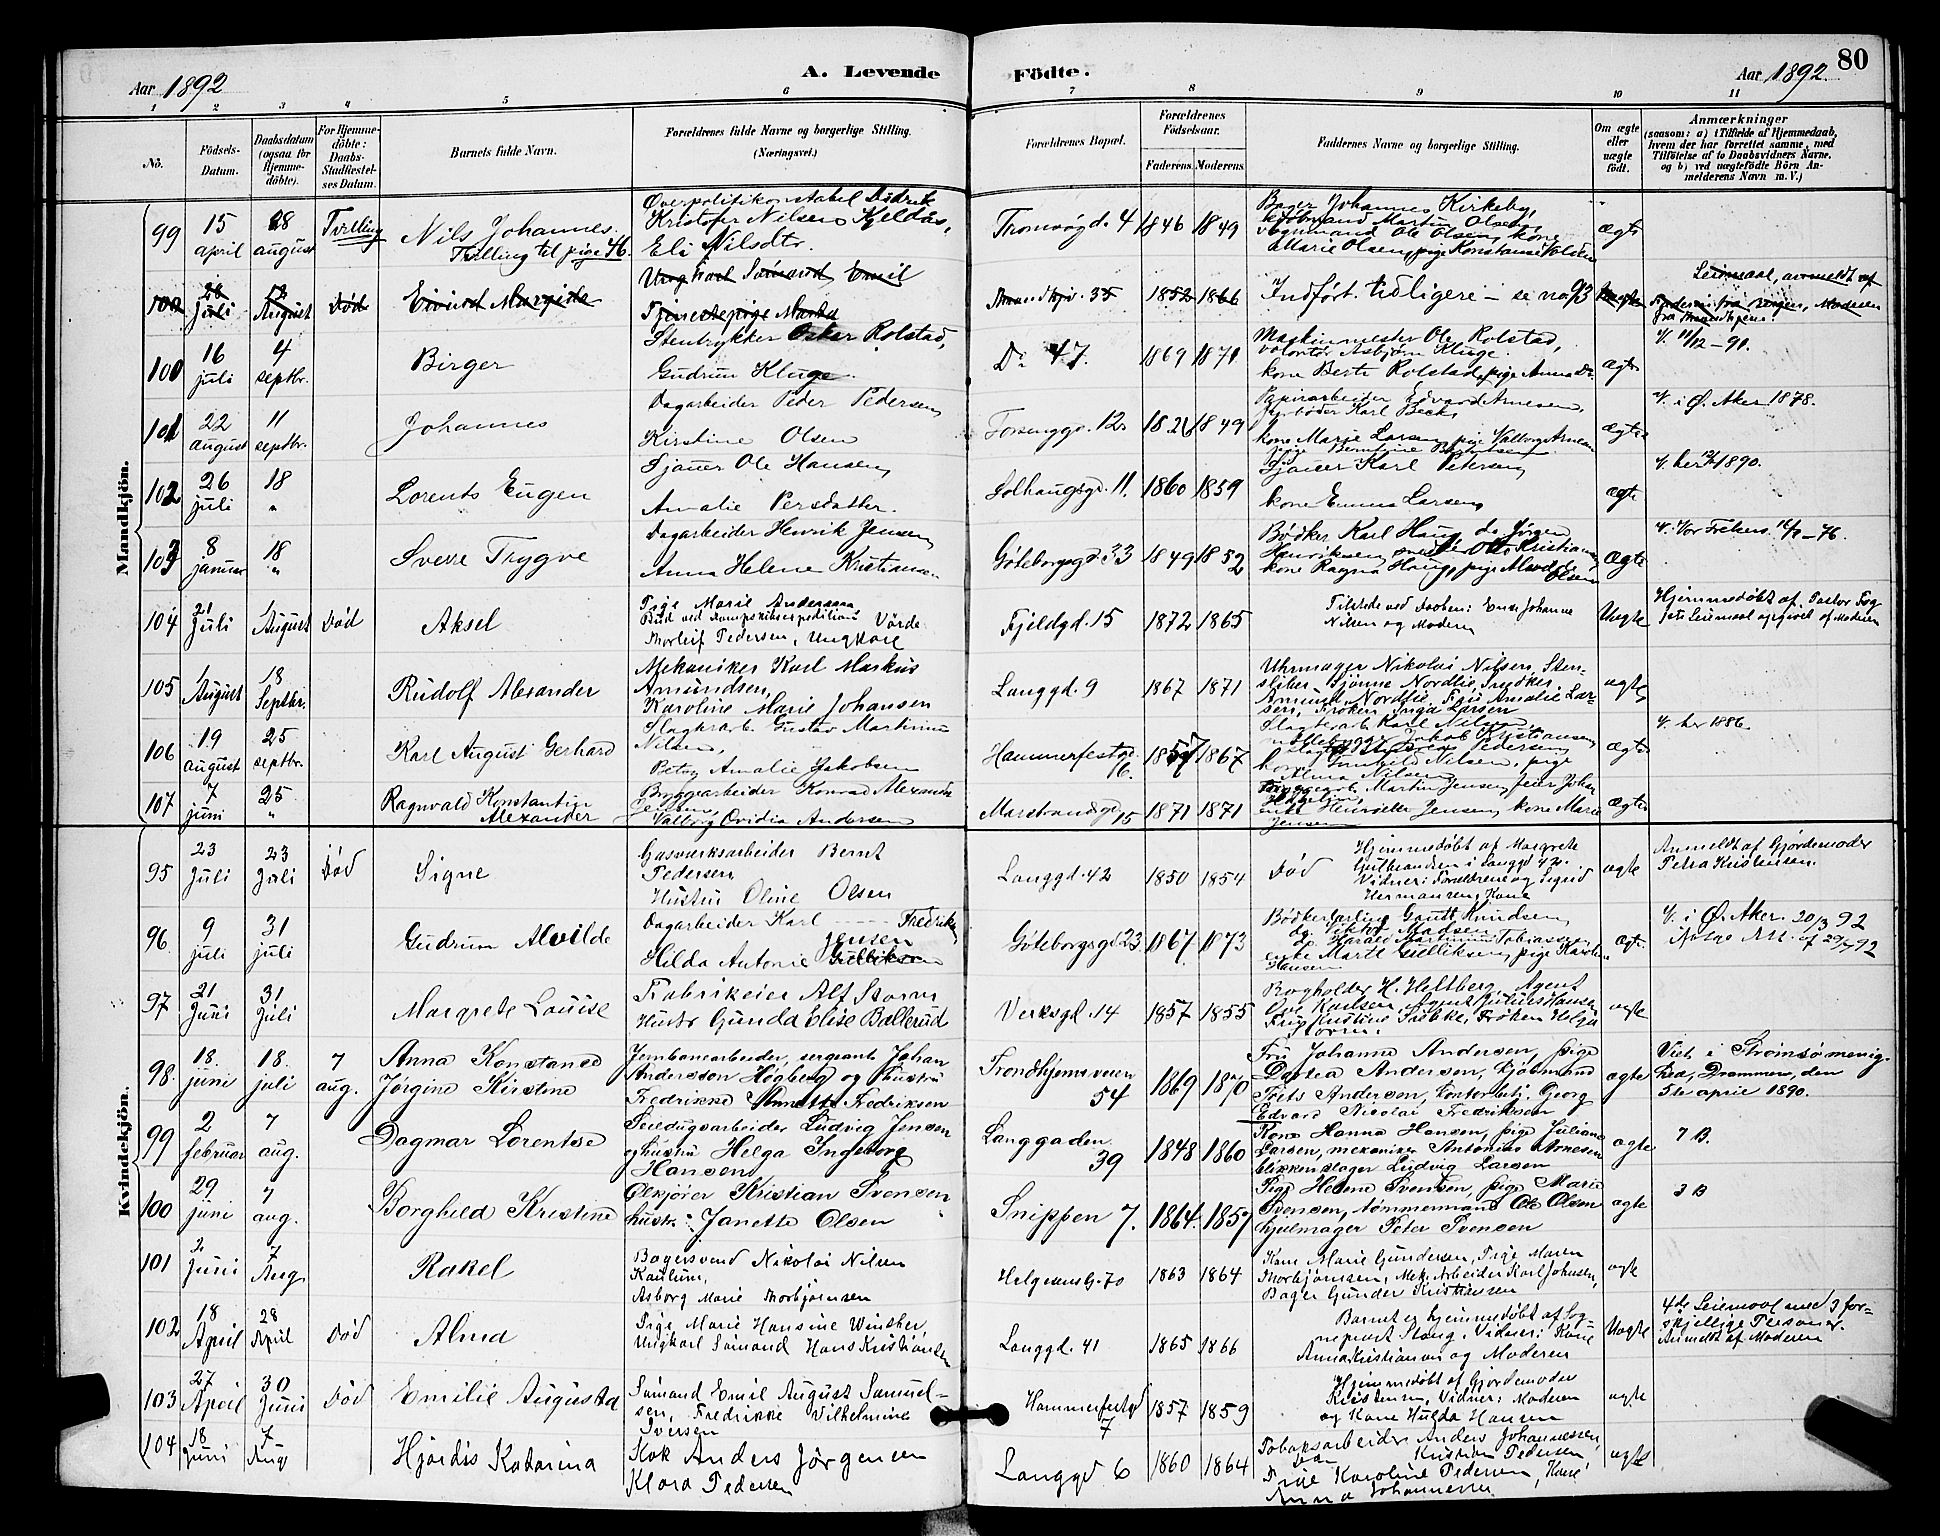 Aar 1892
A. Levende
Födte.
Aar 1892.
80
1 2 3 4 5 6 7 8 9 10 11
No.
Födsels-Datum.
Daabsdatum (ogsaa for Hjemme-döbte).
For Hjemme-döbte: Daabs-Stadfæstel-ses Datum.
Barnets fulde Navn.
Forældrenes fulde Navne og borgerlige Stilling. (Næringsvei.)
Forældrenes Bopæl.
Forældrenes Födselsaar.
Faderens. Moderens.
Faddernes Navne og borgerlige Stilling.
Om ægte eller uægte födt.
Anmærkninger
(saasom: a) i Tilfælde af Hjemmedaab, hvem der har forrettet samme, med Tilföielse af to Daabsvidners Navne, og b) ved uægtefödte Börn An-melderens Navn m. V.)
Mandkjön.
99 15 april 28 august Tvilling
Nils Johannes
Tvilling til pige 46.
Overpolitikonstabel Didrik
Kristofer Nilsen Kjeldås,
Eli Nilsdtr.
Tromsögd. 4 1846 1849
Bager Johannes Kirkeby,
Kjöbmand Martin Olsen,
vognmand Ole Olsen, kone
Marie Olsen, pige Konstanse Volden
ægte
100 Juli 12 August Död
Eivind Margido
Ungkarl Sömand Emil
Tjenestepige Marka
Strandhjv. 35 1852 1866
Indfört tidligere – se no 93
Uægte
100 16 juli 4 septbr.
Birger
Stentrykker Oskar Rolstad,
Gudrun Kluge.
Do 47. 1869 1871
Maskinmester Ole Rolstad,
volontör Asbjörn Kluge.
kone Berte Rolstad, pige Anna Do.
ægte
V. 11/12 – 91.
101 22 august 11 septbr.
Johannes
Dagarbeider Peder Pedersen,
Kirstine Olsen
12. 1849
Papirarbeider Edvard Arnesen,
Fyrböder Karl Beck,
kone Marie Larsen, pige Valborg Arnesen
ægte
V. i Ø. Aker 1878.
102 26 juli 18 "
Lorents Eugen
Sjauer Ole Hansen,
Amalie Persdatter.
Solhaugsgd. 11. 1860 1859
Sjauer Karl Petersen,
kone Emma Larsen,
ægte
V. her 1890.
103 8 januar 18 "
Sverre Trygve
Dagarbeider Henrik Jensen,
Anna Helene Kristiansen
Göteborgsgd. 33 1849 1852
Bödker Karl Haug, do Jörgen
Henriksen, Ole Kristiansen,
kone Ragna Haug, pige
Olsen
ægte
V. Vor Frelsers. – 76.
104 21 Juli 1 August Död
Aksel
Pige Marie Andersen,
Bud ved Dampskibsexpeditionen Vörde
Thorleif Pedersen, Ungkarl
Fjeldgd. 15 1872 1865
Tilstede ved Daaben: Enke Johanne
Nilsen og Moderen
Uægte
Hjemmedöbt af Pastor
1ste Leiemaal opgivet af Moderen
105 1 August 18 Septbr.
Rudolf Alexander
Mekaniker Karl Markus
Amundsen,
Karoline Marie Johansen
Langgd. 9 1867 1871
Uhrmager Nikolai Nilsen, Sten-
sliber Sjönne Nordlie, Snedker
Amund Nordlie, Frue Amalie Lar-
sen, Fröken Inga Larsen
ægte
106 19 august 25 septbr.
Karl August Gerhard
Slagterarb. Gustav Martinius
Nilsen,
Betsy Amalie Jakobsen
Hammerfestgd. 16. 1857 1867
Slagterarb. Karl Nilsen,
Jakob Kristiansen,
Pedersen
kone Gunhild Nilsen, pige
Alma Nilsen
ægte
V. her 1886.
107 7 juni 25 "
Ragnvald Konstantin
Alexander
Bryggearbeider Konrad Alexander
Jensen,
Valborg Ovidia Andersen
Marstrandsgd. 15 1871 1871
Bryggearb. Martin Jensen,
enke Henriette Jensen, kone Marie
Jensen
ægte
Kvindekjön.
95 23 Juli 23 Juli Död
Signe
Gasværksarbeider Bernt
Pedersen
Hustru Oline Olsen
Langgd. 42 1850 1854
Död
Hjemmedöbt af Margrete
Gulbrandsen i Langgd 42.
Vidner: Forældrene og Sigrid
Hermansen, Kone
ægte
Anmeldt af Gjordemoder
Petra Kristensen.
96. 9 juli 31 juli
Gudrun Alvilde
Dagarbeider Karl Fredrik
Jensen
Hilda Antonie Gulliksen
Göteborgsgd 23 1867. 1873
Bödkerlærling Gauti Knudsen,
do Viktor Madsen
do Harald Martinius Tobiassen
enke Marte Gulliksen, pige Karoline
Hansen
ægte
V. i Ø. Aker. 20/3 92
97 21 Juni 31 Juli
Margrete Louise
Fabrikeier Alf Storm
Hustr Gunda Elise Ballerud
Verksgd. 14 1857 1855
Bogholder H. Heltberg, Agent
Ove Karlsen, Agent Julius Hansen
Frue Kristine Fröken Helga
Storm.
ægte
98. 18. juni 18. juli 7 aug.
Anna Konstanse
Jörgine Kirstine
Jernbanearbeider, sergeant Johan
Andersson Högberg og hustru
Fredrikke Annette Fredriksen
Trondhjemsveien 54 1869 1870
Fru Johanna Andersen, pige
Dortea Andersen, kjöbmand
Andersen, kontorbetj. Georg
Edvard Nicolai Fredriksen
ægte
Viet i Strömsö menig-
hed, Drammen, den
5te april 1890.
99 2 februar 7 aug.
Dagmar Lorentse
Seildugsarbeider Ludvig Jensen
og hustru Helga Ingeborg
Hansen
Langgaden 39 1848 1860
Kone Hanna Hansen, pige Juliane
Larsen, mekaniker Antonius Arnesen
blikkenslager Ludvig Larsen
ægte
7 B.
100 29 juni 7 aug.
Borghild Kristine
Ölkjörer Kristian Svensen
hustr: Janette Olsen
Snippen 7. 1864. 1857
Pige Helene Svensen, pige Marie
Svensen, tömmermand Ole Olsen
hjulmager Peter Svensen
ægte
3 B
101 2 Juni 7 Aug.
Rakel
Bagersvend Nikolai Nilsen
Kaulum,
Asborg Marie Thorbjörnsen
Helgesens G. 70 1863 1864
Kone Marie Gundersen, Pige Maren
Thorbjörnsen, Mek. Arbeider Karl Johnsen,
Bager Gunder Kristiansen
ægte
102 18 April 28 April Död
Alma
Pige Marie Hansine Winther
Ungkarl Sömand Hans Kristiansen
Langgd. 41 1865 1866
Barnet er hjemmedöbt af Sog-
neprest Stang. Vidner: Kone
Anna Kristiansen og Moderen
Uægte
4de Leiemaal med 3 for-
skjellige Personer.
Anmeldt af Moderen
103 27 April 30 Juni Död
Emilie Augusta
Sömand Emil August Samuel-
sen, Fredrikke Vilhelmine
Iversen
Hammerfestgd 7 1857 1859
Hjemmedöbt af Gjordemoder
Kristensen, Vidner: Moderen
og Kone Hulda Hansen
ægte
104 18 Juni 7 Aug
Hjördis Katarina
Kok Anders Jörgensen
Klara Pedersen
Langgd 6 1860 1864
Tobaksarbeider Anders Johannessen,
Kristian Pedersen,
Frue Karoline Pedersen, Kone
Anna Johannessen
ægte